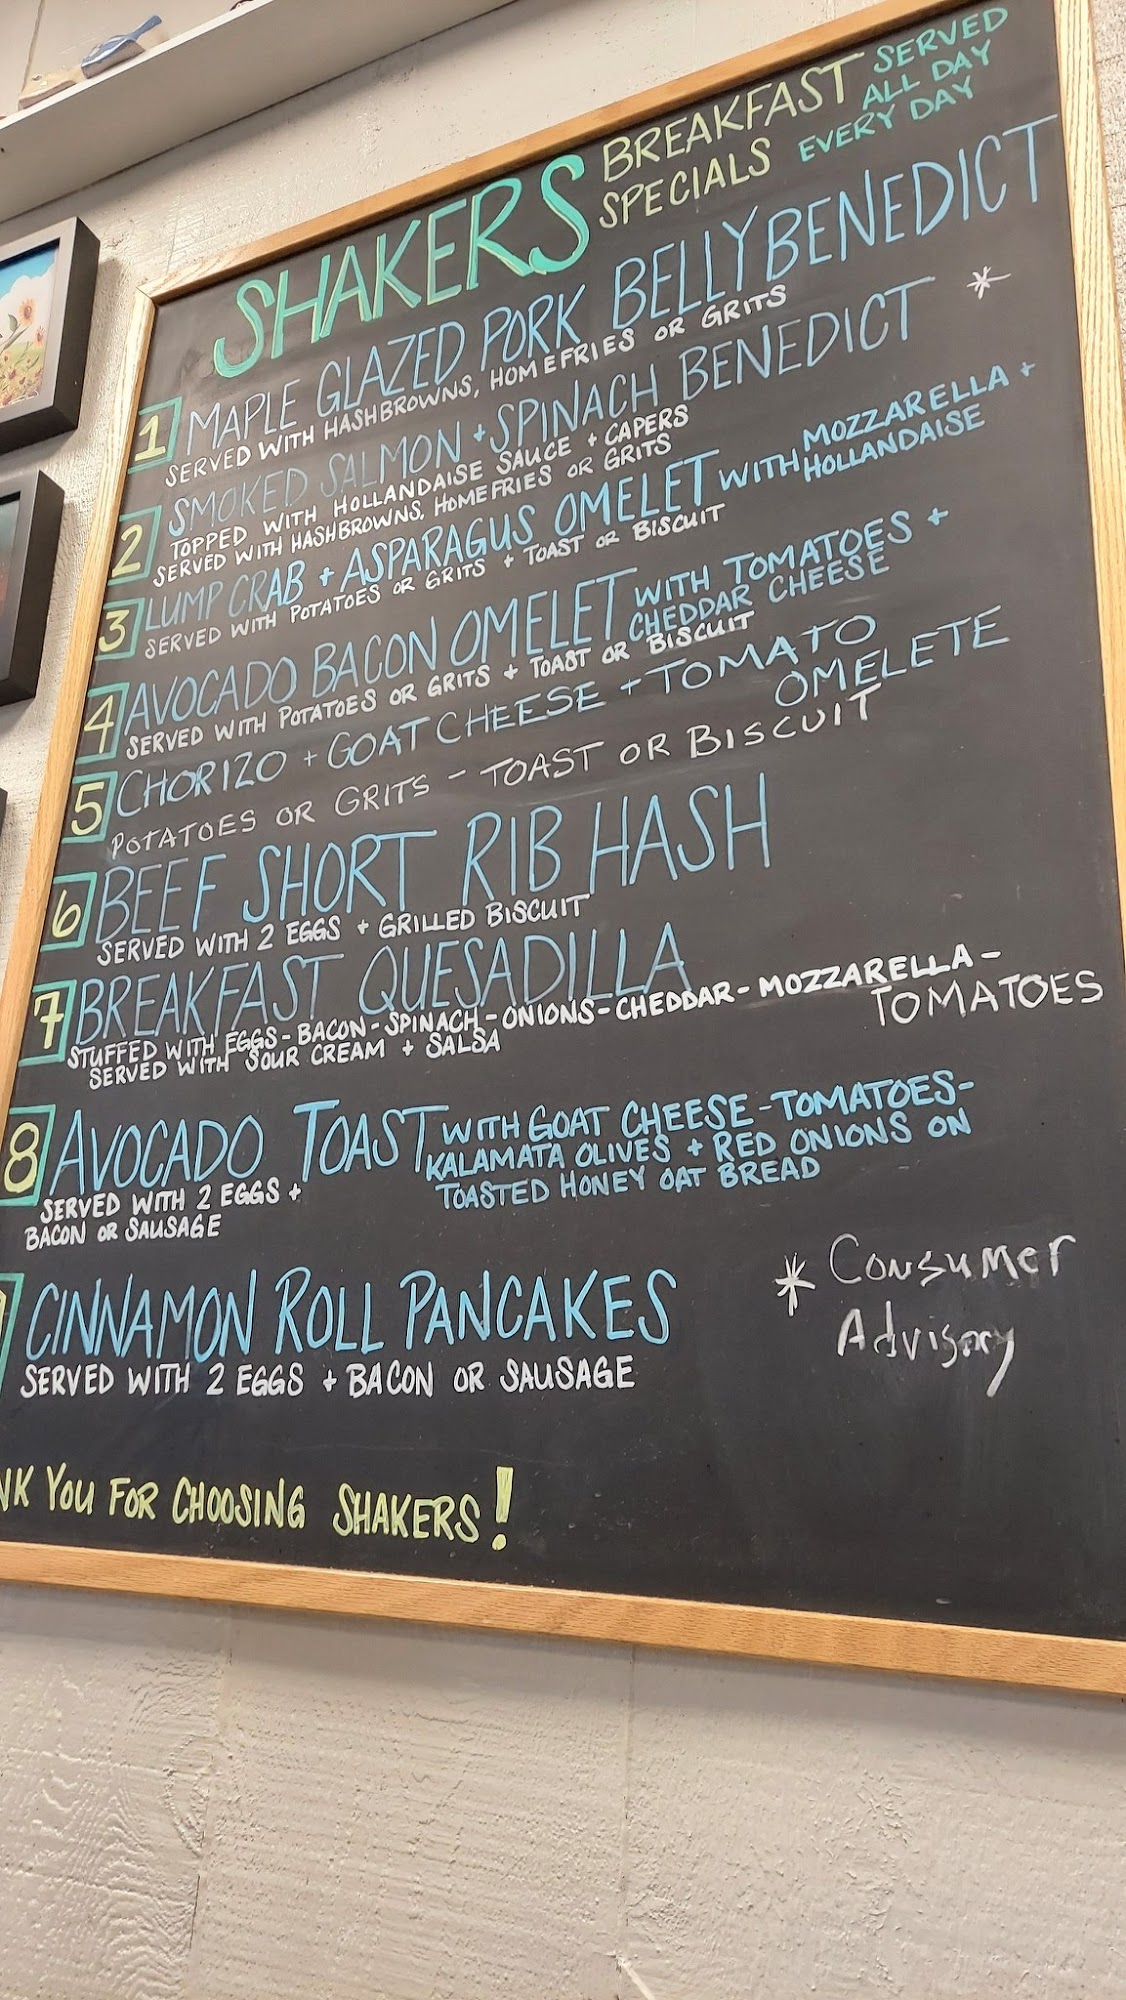 SHAKERS
BREAKFAST
SPECIALS
SERVED
ALL DAY
EVERY DAY
1 MAPLE GLAZED PORK BELLY BENEDICT
SERVED WITH HASHBROWNS, HOMEFRIES OR GRITS
2 SMOKED SALMON + SPINACH BENEDICT *
TOPPED WITH HOLLANDAISE SAUCE + CAPERS
SERVED WITH HASHBROWNS, HOMEFRIES OR GRITS
3 LUMP CRAB + ASPARAGUS OMELET WITH MOZZARELLA +
HOLLANDAISE
SERVED WITH POTATOES OR GRITS + TOAST OR BISCUIT
4 AVOCADO BACON OMELET WITH TOMATOES +
CHEDDAR CHEESE
SERVED WITH POTATOES OR GRITS + TOAST OR BISCUIT
5 CHORIZO + GOAT CHEESE + TOMATO
OMELETE
POTATOES OR GRITS - TOAST OR BISCUIT
6 BEEF SHORT RIB HASH
SERVED WITH 2 EGGS + GRILLED BISCUIT
7 BREAKFAST QUESADILLA
STUFFED WITH EGGS - BACON - SPINACH - ONIONS - CHEDDAR - MOZZARELLA -
TOMATOES
SERVED WITH SOUR CREAM + SALSA
8 AVOCADO TOAST WITH GOAT CHEESE - TOMATOES -
KALAMATA OLIVES + RED ONIONS ON
TOASTED HONEY OAT BREAD
SERVED WITH 2 EGGS +
BACON OR SAUSAGE
CINNAMON ROLL PANCAKES
SERVED WITH 2 EGGS + BACON OR SAUSAGE
* Consumer
Advisory
NK YOU FOR CHOOSING SHAKERS!